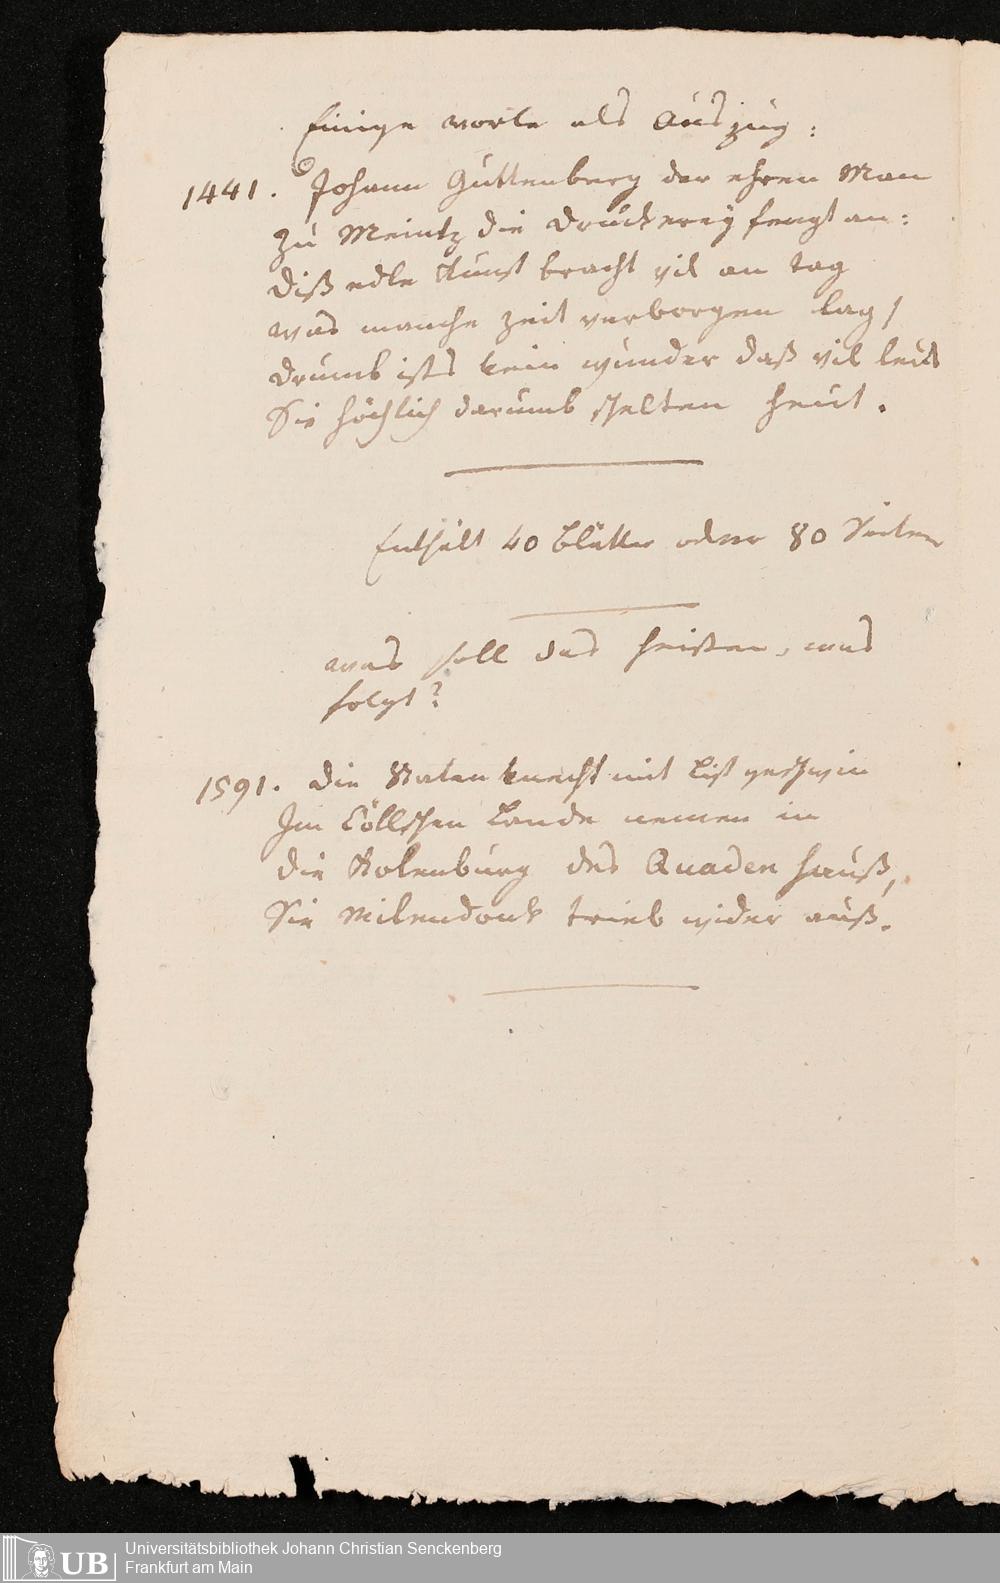 Einige worte als Auszug:
1441. Johann Guttenberg der ehren Man
Zu Meintz die Druckereÿ fengt an:
Diß edle Kunst bracht vil an tag
was manche Zeit verborgen lag /
Drumb ists kein wunder daß vil leut
Sie höchlich darumb schelten heut.
Enthält 40 Blätter oder 80 Seiten
was soll das heißen, was
folgt?
1591. Die Staten knecht mit List geschwin
Im Cöllschen Lande nemen in
die Rolenburg des Quaden Hauß,
Sie Milendonk trieb wider auß.
UB
Universitätsbibliothek Johann Christian Senckenberg
Frankfurt am Main